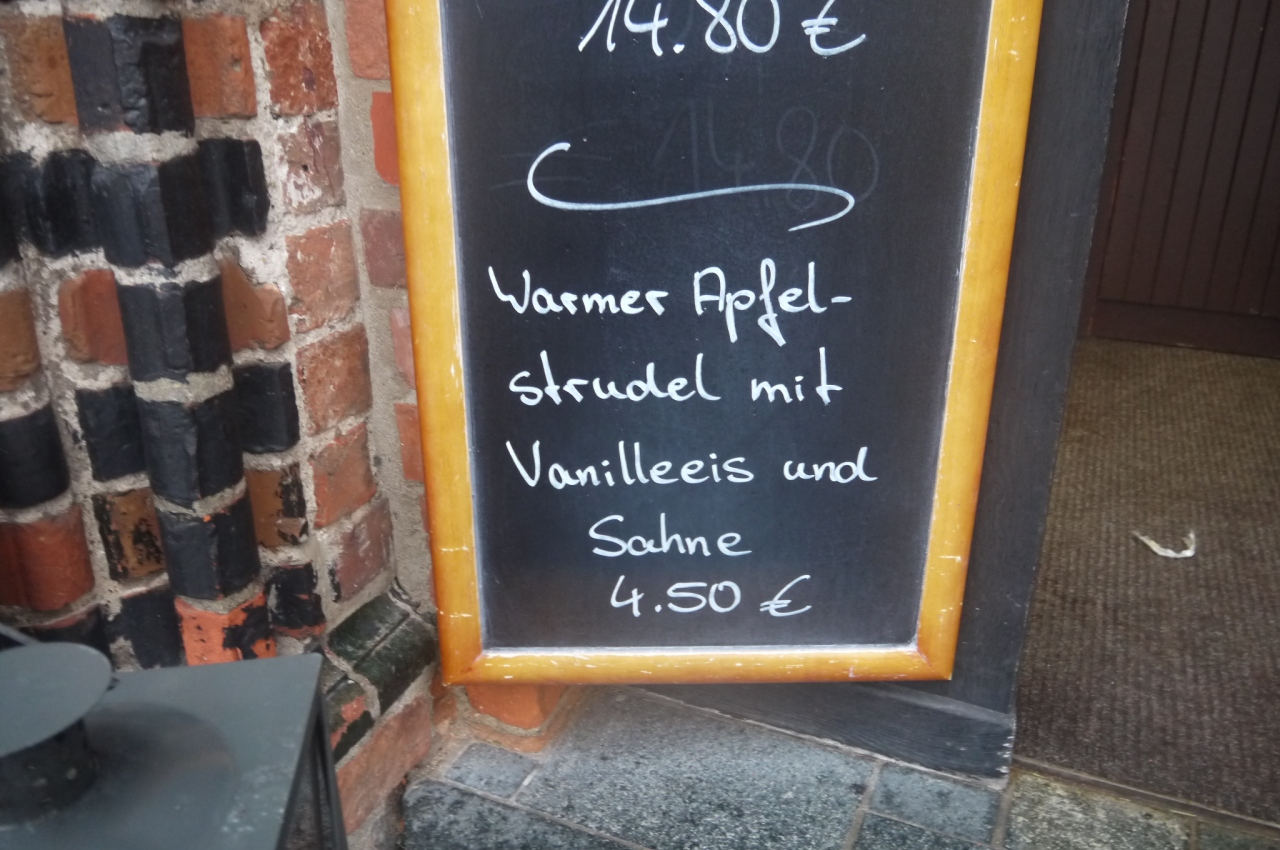 14.80 €
14.80
Warmer Apfel-
strudel mit
Vanilleeis und
Sahne
4.50 €